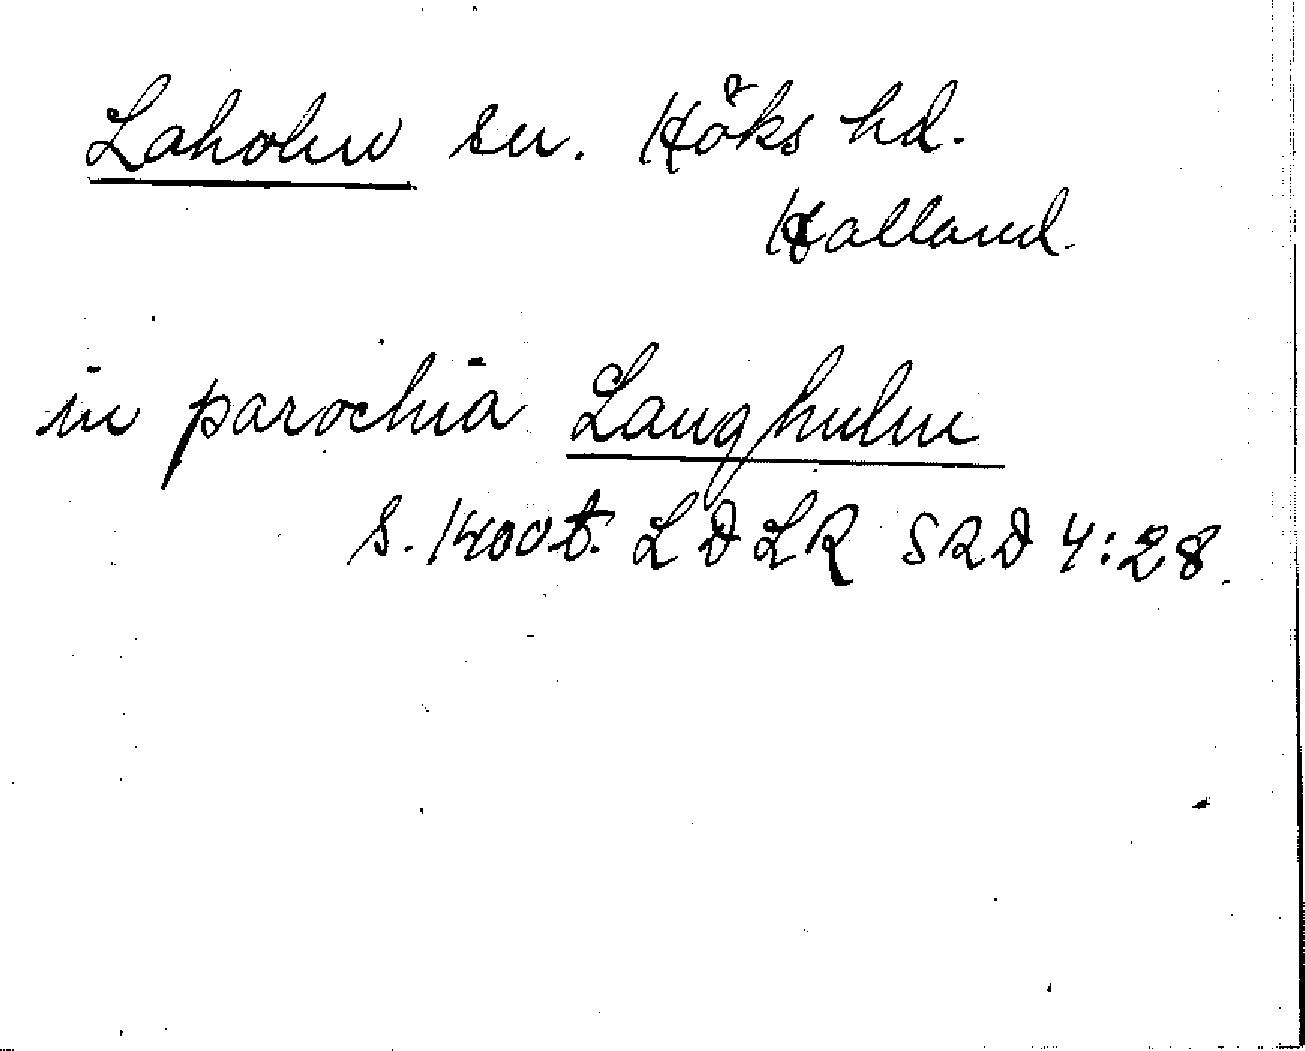 Laholm sn. Höks hd.
Halland.
in parochia Laugholm
S. 1400t. LDLR SRD 4:28.